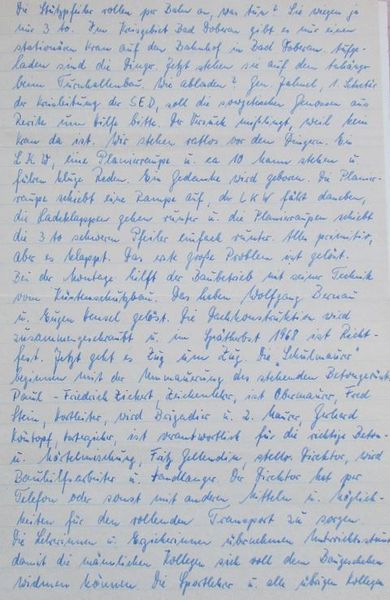 Die Stützpfeiler rollen per Bahn an, was tun? Sie wiegen ja
nur 3 to. Im Kreisgebiet Bad Doberan gibt es nur einen
stationären Kran auf dem Bahnhof in Bad Doberan. Aufge-
laden sind die Dinger. Jetzt stehen sie auf dem Anhänger
beim Turnhallenbau. Wie abladen? Gen. 1. Sekretär
der Kreisleitung der SED, soll die sowjetischen Genossen aus
um Hilfe bitte. Der Versuch mißlingt, weil kein
Kran da ist. Wir stehen ratlos vor den Dingern. Ein
LKW, eine Planierraupe u. ca 10 Mann stehen u.
führen kluge Reden. Ein Gedanke wird geboren. Die Planier-
raupe schiebt eine Rampe auf, der LKW fährt daneben,
die Ladeklappen gehen runter u. die Planierraupe schiebt
die 3 to schweren Pfeiler einfach runter. Alles primitiv,
aber es klappt. Das erste große Problem ist gelöst.
Bei der Montage hilft der Baubetrieb mit seiner Technik
vom Küstenschutzbau. Das haben Wolfgang
u. Eugen gelöst. Die Dachkonstruktion wird
zusammengeschraubt u. im Spätherbst 1968 ist Richt-
fest. Jetzt geht es Zug um Zug. Die "Schulmaurer"
beginnen mit der Ummauerung des stehenden Betongerüsts
Paul-Friedrich Zickert, Zeichenlehrer, ist Obermaurer, Fred
Stein, Hortleiter, wird Brigadier u. 2. Maurer, Gerhard
ist verantwortlich für die richtige Beton-
u. Mörtelmischung, Fritz Gellendin, stellv. Direktor, wird
Bauhilfsarbeiter u. Handlanger. Der Direktor hat per
Telefon oder sonst mit anderen Mitteln u. Möglich-
keiten für den rollenden Transport zu sorgen.
Die Lehrerinnen u. Erzieherinnen übernehmen Unterrichtsstunden
damit die männlichen Kollegen sich voll dem Baugeschehen
widmen können. Die Sportlehrer u. alle übrigen Kollegen